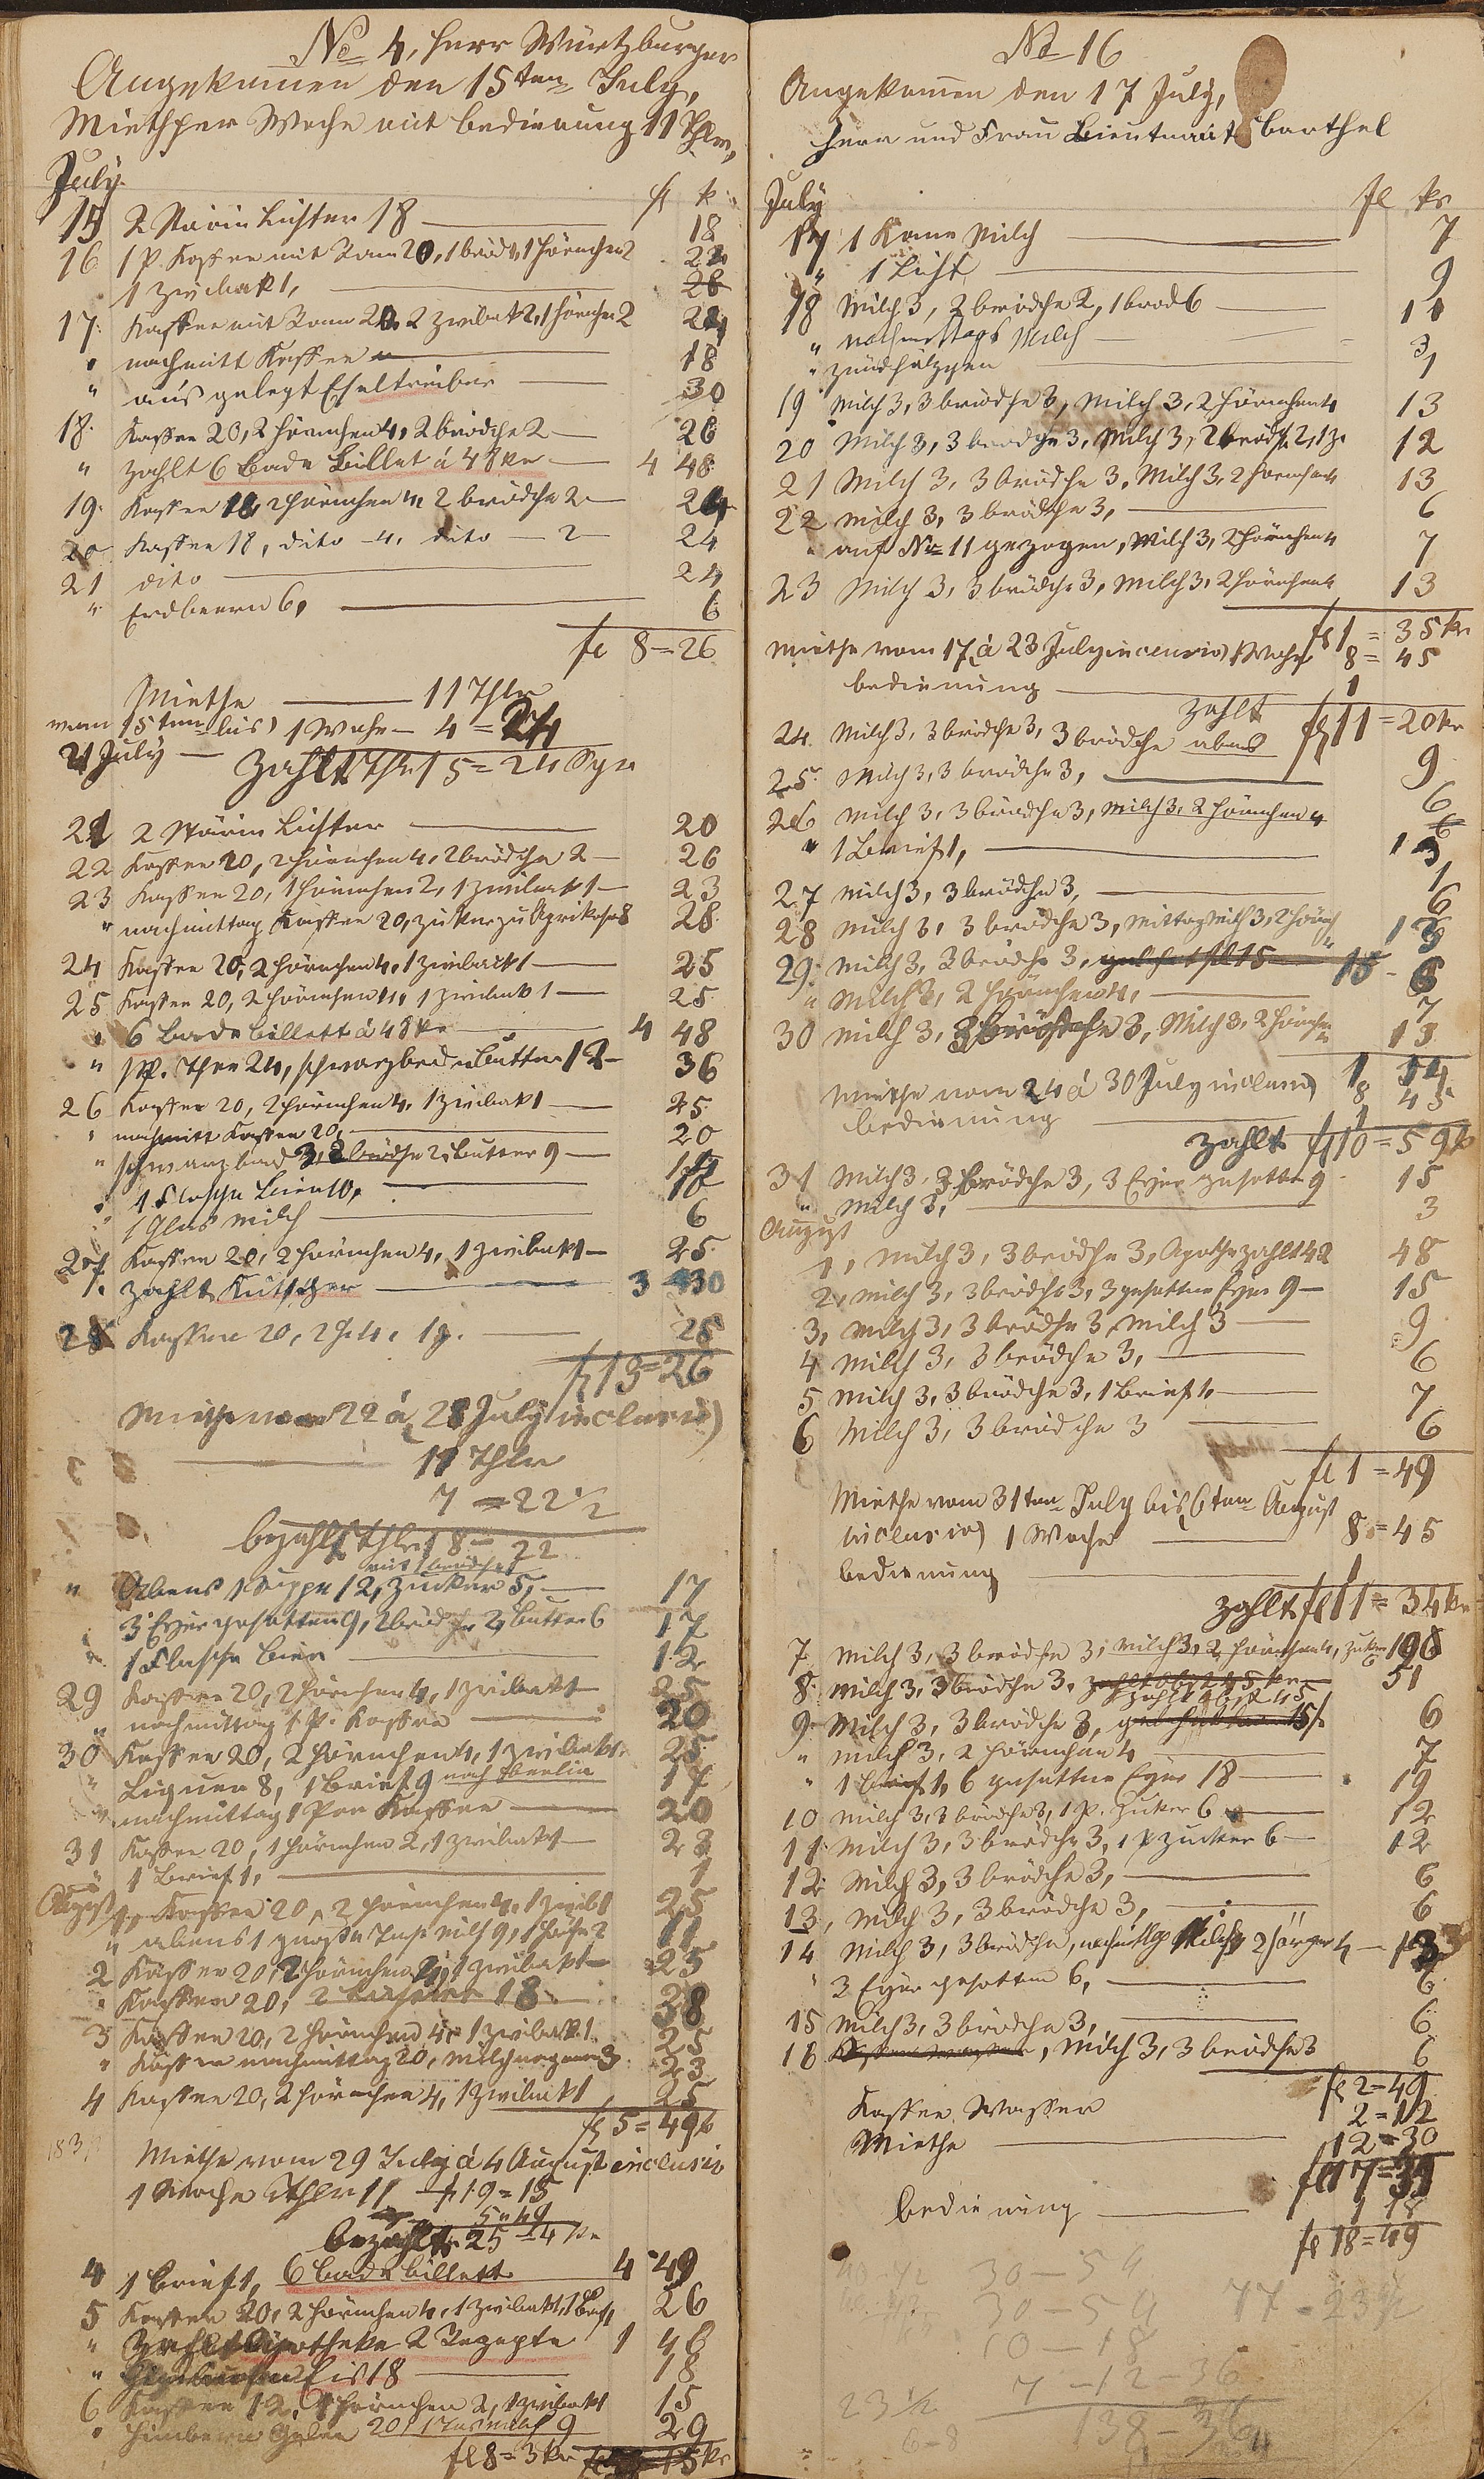 No 4, Herr Würtzburger
Angekommen den 15ten July,
Mieth per Woche mit bedienung 11 Thlr,
July fl k
15 2 Stärin Lichter 18 18
16 1 P. Kaffee mit Ram 20, 1 bröd, 1 Hörnchen 2
1 Zwibak 1,
17. Kaffee mit Ram 20, 2 Zwibak 2, 1 Hörnchen 2 24
" nachmitt Kaffee 18
" aus gelegt Eseltreiber 30
18. Kaffee 20, 2 Hörnchen 4, 2 brödche 2 26
" zahlt 6 Bade Billet á 48 kr 4 48
19. Kaffee 18, 2 Hörnchen 4, 2 brödche 2 24
20 Kaffee 18, dito 4, dito 2 24
21 dito 24
" Erdbeern 6, 6
fl 8=26
Miethe 11 Thlr
vom 15ten bis 1 Woche 4=24
21 July
zahlt Thlr 15=24 Sgr
21 2 Stärin Lichter 20
22 Kaffee 20, 2 Hörnchen 4, 2 brödche 2 26
23 Kaffee 20, 1 Hörnchen 2, 1 Zwibak 1 23
" nachmittag Kaffee 20, Zuker zu Aprikosen 8 28
24 Kaffee 20, 2 Hörnchen 4, 1 Zwibak 1 25
25 Kaffee 20, 2 Hörnchen 4, 1 Zwibak 1 25
" 6 Bade billett á 48 kr 4 48
" 1 P. Thee 24, schwarzbrod u Butter 12 36
26 Kaffee 20, 2 Hörnchen 4, 1 Zwibak 1 25
" nachmitt Kaffee 20, 20
" schwarzbrod 3, 2 brödche 2, Butter 9
" 1 Flasche Bier 10, 10
" 1 Glas Milch 6
27 Kaffee 20, 2 Hörnchen 4, 1 Zwibak 1 25
" zahlt Kutscher 3 30
28 Kaffee 20, 2 H. 4, 1 z. 25
fl 13=26
Miethe vom 22 á 28 July inclusiv
11 Thlr
7=22 1/2
bezahlt Thlr 18=22
mit 1 brödche
" Abens 1 Suppe 12, Zucker 5, 17
3 Eyer gesotten 9, 2 brödche 2, Butter 6 17
" 1 Flasche Bier 12
29 Kaffee 20, 2 Hörnchen 4, 1 Zwibak 1 25
" nachmittag 1 P. Kaffee 20
30 Kaffee 20, 2 Hörnchen 4, 1 Zwibak 1 25
" Liquer 8, 1 Brief 9 nach Berlin 17
" nachmittag 1 Por Kaffee 20
31 Kaffee 20, 1 Hörnchen 2, 1 Zwibak 1 23
" 1 Brief 1, 1
August 1, Kaffee 20, 2 Hörnchen 4, 1 Zwibk 1 25
" abens 1 große Tase Milch 9, 1 Hörche 2 11
2 Kaffee 20, 2 Hörnchen 4, 1 Zwibak 1 25
" Kaffee 20, 18 38
3 Kaffee 20, 2 Hörnchen 4, 1 Zwibak 1 25
" Kaffee nachmittag 20, Milch 3 23
4 Kaffee 20, 2 Hörnchen 4, 1 Zwibak 1 25
fl 5=49 k
Miethe vom 29 July á 4 August inclusiv
1 Woche Thlr 11 fl 19=15
5 " 49
bezahlt 25=4 kr
4 1 Brief 1, 6 Bade billett 4 49
5 Kaffee 20, 2 Hörnchen 4, 1 Zwibak 1, 1 Brf 1 26
" Zahlt Apotheke 2 Rezepte 1 48
" Himbeeren Eis 18 18
6 Kaffee 12, 1 Hörnchen 2, 1 Zwibak 1 15
" Himbeern Gelee 20, 1 Tas Milch 9 29
fl 8=3 kr
No 16
Angekommen den 17 July,
Herr und Frau Lieutnant Barthel
July fl kr
17 1 Kanne Milch 7
" 1 Licht 9
18 Milch 3, 2 brödche 2, 1 brod 6 11
" nachmittags Milch 3
" zündhölzgen 1
19 Milch 3, 3 brödche 3, Milch 3, 2 Hörnchen 4 13
20 Milch 3, 3 brödche 3, Milch 3, 2 brödche 2, 1 z. 12
21 Milch 3, 3 brödche 3, Milch 3, 2 Hörnchen 4 13
22 Milch 3, 3 brödche 3, 6
" auf No 11 gezogen, Milch 3, 2 Hörnchen 4 7
23 Milch 3, 3 brödche 3, Milch 3, 2 Hörnchen 4 13
fl 1=35 kr
Miethe vom 17 á 23 July inclusiv 1 Woche 8=45
bedienung 1
zahlt fl 11=20 kr
24. Milch 3, 3 brödche 3, 3 brödche abens 9
25. Milch 3, 3 brödche 3, 6
26 Milch 3, 3 brödche 3, Milch 3, 2 Hörnchen 4 13
" 1 Brief 1, 1
27 Milch 3, 3 brödche 3, 6
28 Milch 3, 3 brödche 3, Mittag Milch 3, 2 Hörnch 4 13
29. Milch 3, 3 brödche 3, 6
" Milch 3, 2 Hörnchen 4, 7
30 Milch 3, 3 brödche 3, Milch 3, 2 Hörnchen 4 13
1 14
Miethe vom 24 á 30 July inclusiv 8 45
bedienung 1
zahlt fl 10=59 k
31 Milch 3, 3 brödche 3, 3 Eyer gesotten 9 15
" Milch 3, 3
August
1, Milch 3, 3 brödche 3, Apothe zahlt 42 48
2, Milch 3, 3 brödche 3, 3 gesottne Eyer 9 15
3, Milch 3, 3 brödche 3, Milch 3 9
4 Milch 3, 3 brödche 3, 6
5 Milch 3, 3 brödche 3, 1 Brief 1, 7
6 Milch 3, 3 brödche 3 6
fl 1=49
Miethe vom 31ten July bis 6ten August
inclusiv 1 Woche 8=45
bedienung 1
zahlt fl 11=34 kr
7 Milch 3, 3 brödche 3, Milch 3, 2 Hörnchen 4, Zuker 6 19
8. Milch 3, 3 brödche 3, zahlt obst 45 kr 51
zahlt obst 45
9. Milch 3, 3 brödche 3, 6
" Milch 3, 2 Hörnchen 4 7
" 1 Brief 1, 6 gesottne Eyer 18 19
10 Milch 3, 3 brödche 3, 1 P. Zuker 6 12
11 Milch 3, 3 brödche 3, 1 P Zucker 6 12
12 Milch 3, 3 brödche 3, 6
13, Milch 3, 3 brödche 3, 6
14 Milch 3, 3 brödche, nachmittag Milch 3 13
" 3 Eyer gesotten 6, 6
15 Milch 3, 3 brödche 3, 6
16 , Milch 3, 3 brödche 3 6
fl 2=49
Kaffee Wasser 2=12
Miethe 12=30
bedienung 1 18
fl 18=49
30–54
30–54 77–23 1/2
10–18
7–12–36
23 1/2 138–36
6–8